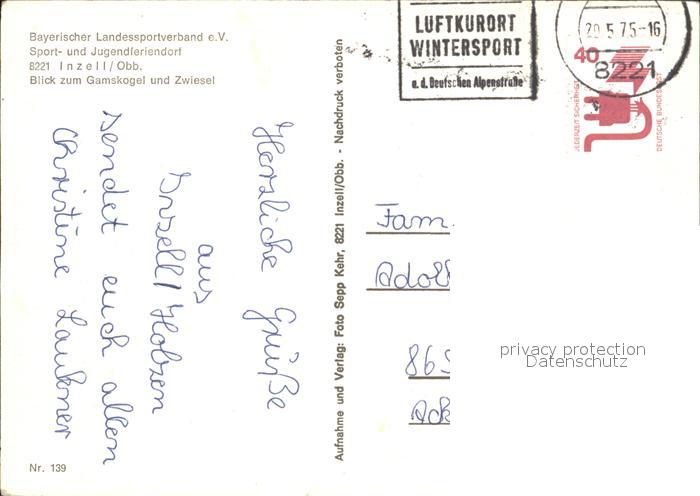 Bayerischer Landessportverband e.V.
Sport- und Jugendferiendorf
8221 Inzell/Obb.
Blick zum Gamskogel und Zwiesel
Herzliche Grüße
aus
Inzell/
sendet euch allen
Christine
Nr. 139
Aufnahme und Verlag: Foto Sepp Kehr, 8221 Inzell/Obb. - Nachdruck verboten
LUFTKURORT
WINTERSPORT
a. d. Deutschen Alpenstraße
20.5.75-16
8221
40
JEDERZEIT SICHERHEIT
DEUTSCHE BUNDESPOST
Fam.
Adolf
86
privacy protection
Datenschutz